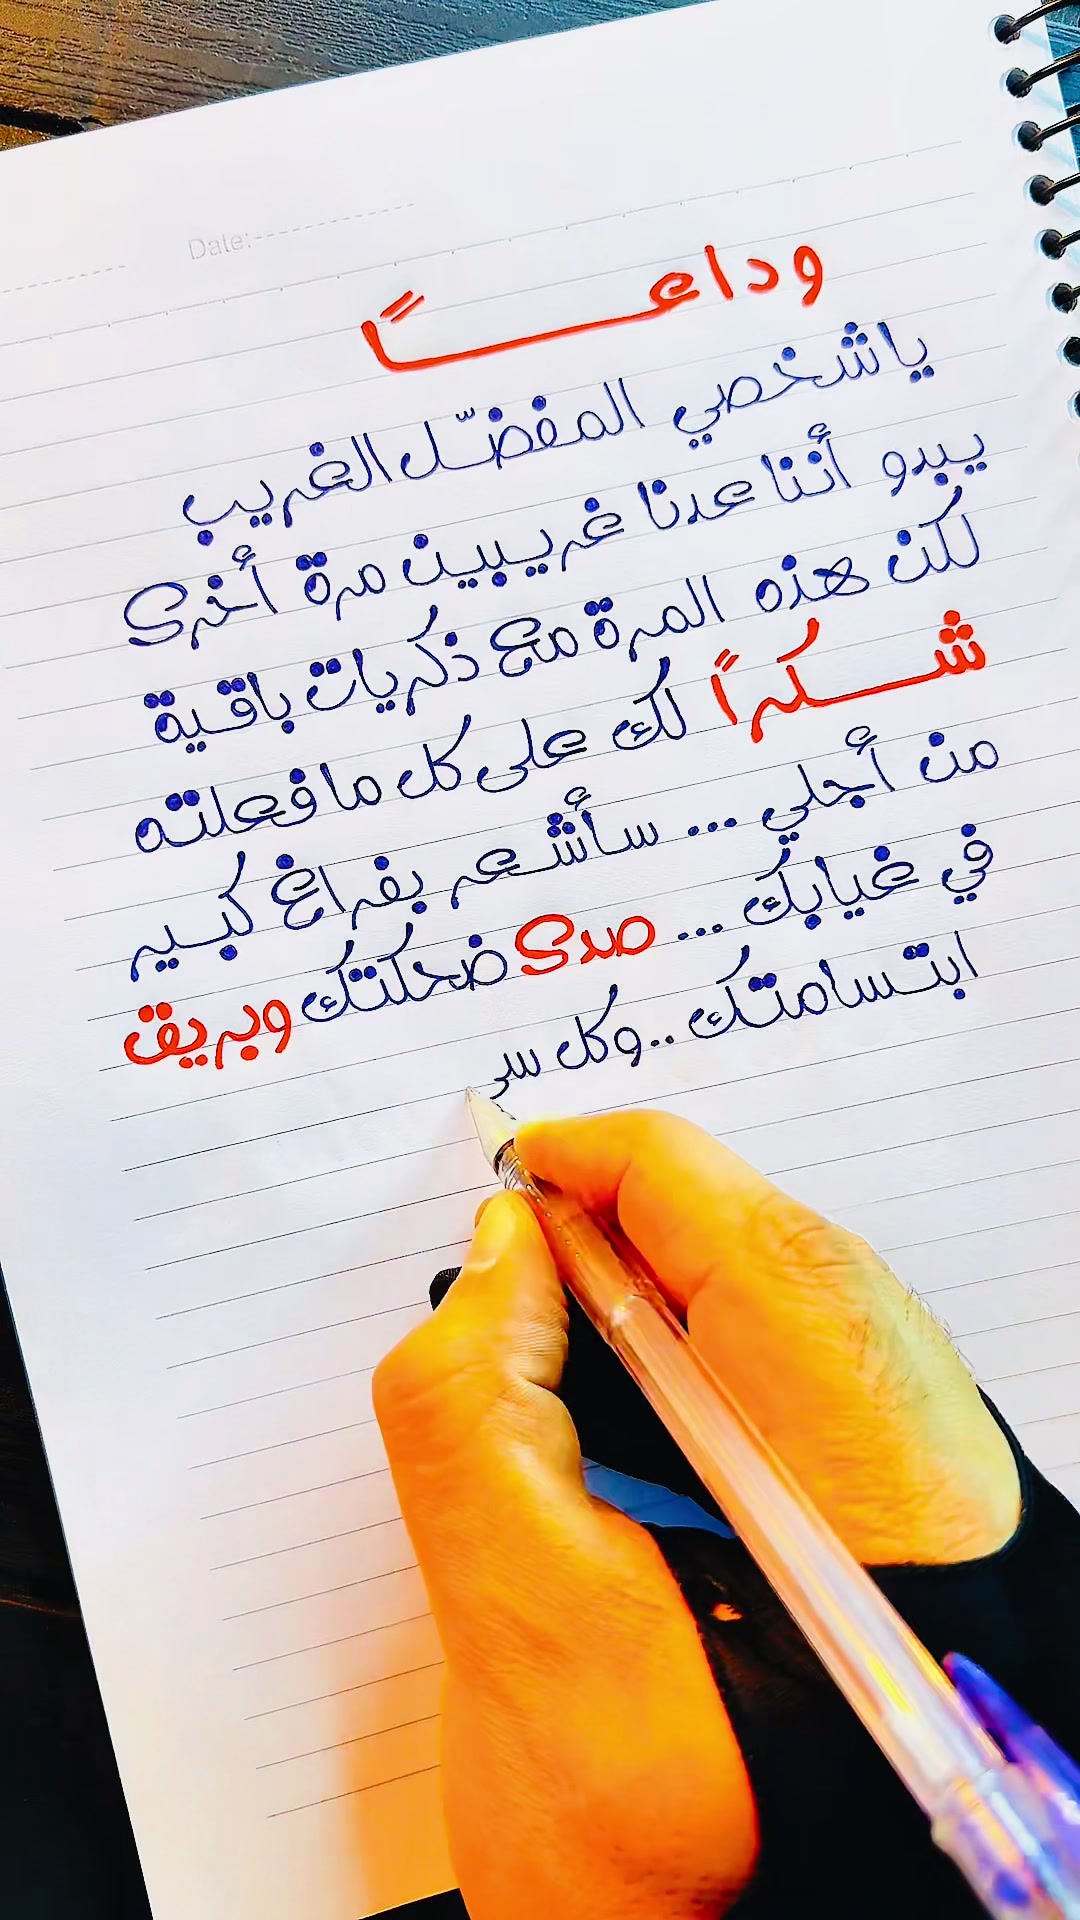 Date:
وداعـــاً
يا شخصي المفضّل الغريب
يبدو أننا عدنا غريبين مرة أخرى
لكن هذه المرة مع ذكريات باقية
شـــكراً لك على كل ما فعلته
من أجلي ... سأشعر بفراغ كبير
في غيابك ... صدى ضحكتك وبريق
ابتسامتك .. وكل سر